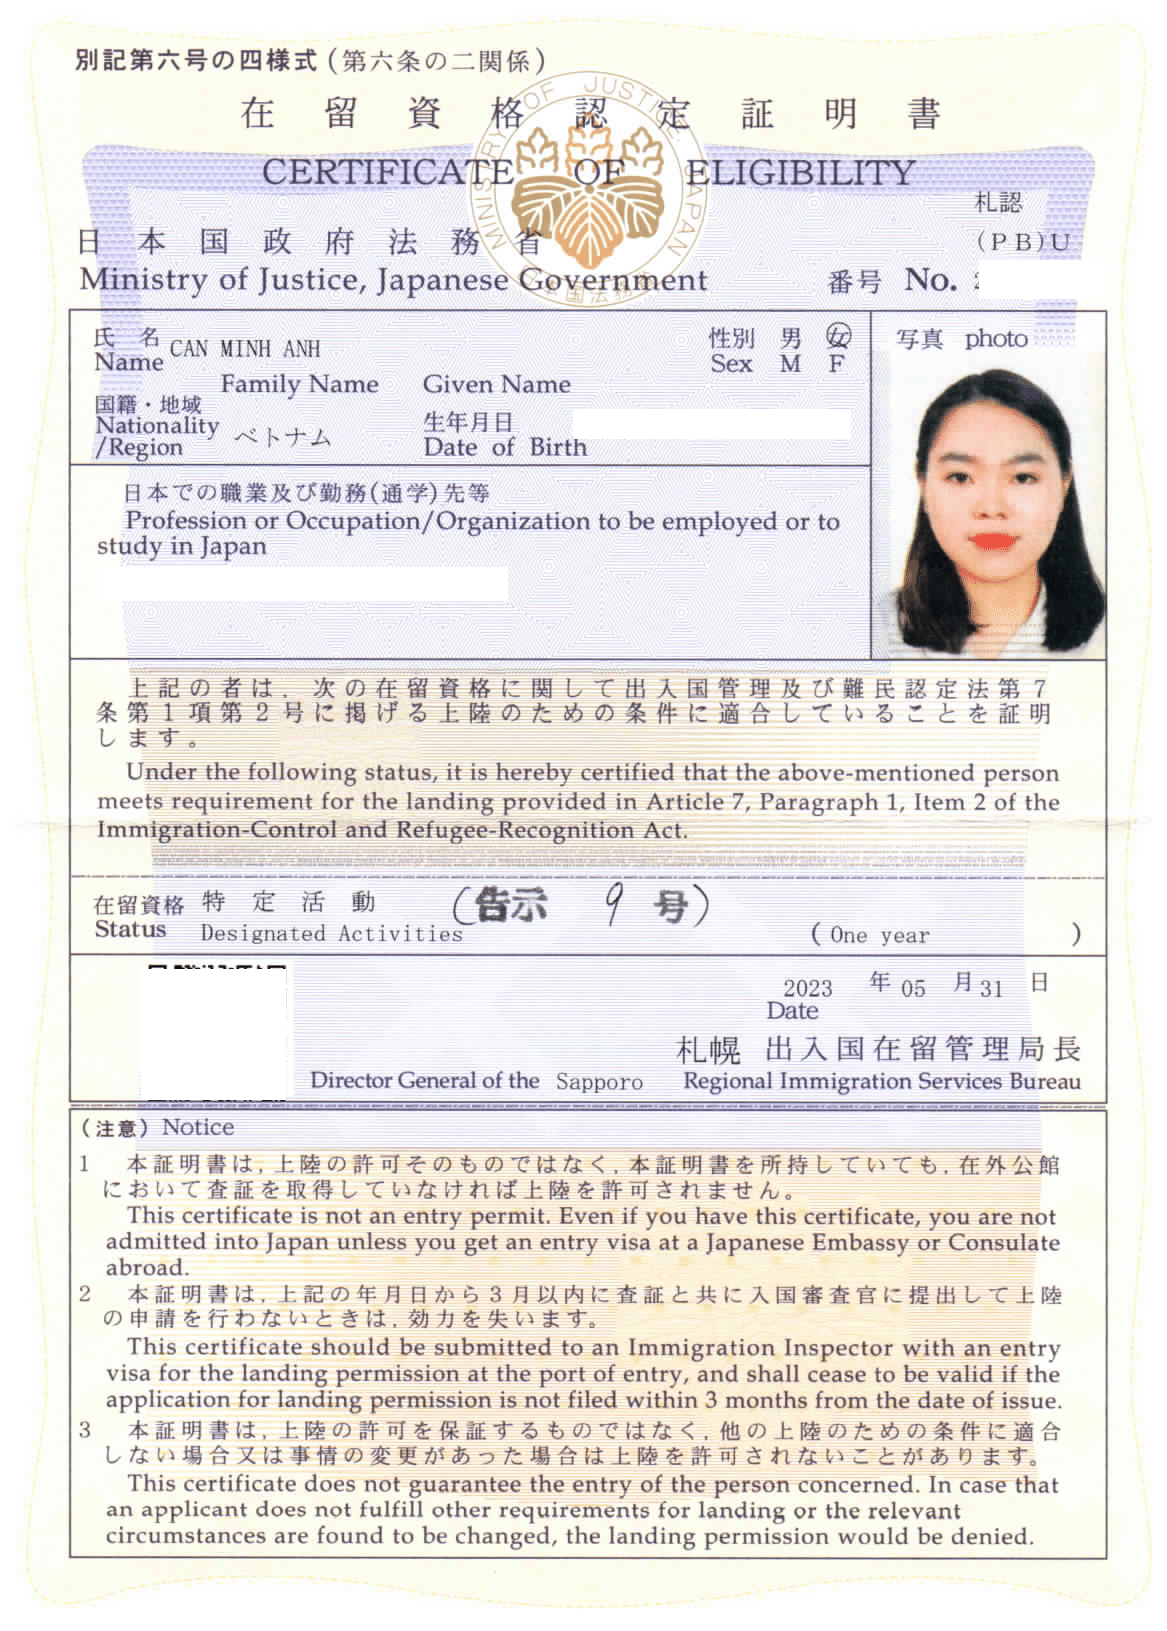 別記第六号の四様式(第六条の二関係)
在留資格認定証明書
CERTIFICATE OF ELIGIBILITY
MINISTRY OF JUSTICE, JAPAN
札認
日本国政府法務省
(PB)U
Ministry of Justice, Japanese Government
番号 No.
氏名
Name CAN MINH ANH
Family Name Given Name
性別 男 女
Sex M F
写真 photo
国籍・地域
Nationality
/Region ベトナム
生年月日
Date of Birth
日本での職業及び勤務(通学)先等
Profession or Occupation/Organization to be employed or to
study in Japan
上記の者は,次の在留資格に関して出入国管理及び難民認定法第7
条第1項第2号に掲げる上陸のための条件に適合していることを証明
します。
Under the following status, it is hereby certified that the above-mentioned person
meets requirement for the landing provided in Article 7, Paragraph 1, Item 2 of the
Immigration-Control and Refugee-Recognition Act.
在留資格 特定活動 (告示 9 号)
Status Designated Activities ( One year )
2023 年 05 月 31 日
Date
札幌 出入国在留管理局長
Director General of the Sapporo Regional Immigration Services Bureau
(注意) Notice
1 本証明書は,上陸の許可そのものではなく,本証明書を所持していても,在外公館
において査証を取得していなければ上陸を許可されません。
This certificate is not an entry permit. Even if you have this certificate, you are not
admitted into Japan unless you get an entry visa at a Japanese Embassy or Consulate
abroad.
2 本証明書は,上記の年月日から3月以内に査証と共に入国審査官に提出して上陸
の申請を行わないときは,効力を失います。
This certificate should be submitted to an Immigration Inspector with an entry
visa for the landing permission at the port of entry, and shall cease to be valid if the
application for landing permission is not filed within 3 months from the date of issue.
3 本証明書は,上陸の許可を保証するものではなく,他の上陸のための条件に適合
しない場合又は事情の変更があった場合は上陸を許可されないことがあります。
This certificate does not guarantee the entry of the person concerned. In case that
an applicant does not fulfill other requirements for landing or the relevant
circumstances are found to be changed, the landing permission would be denied.